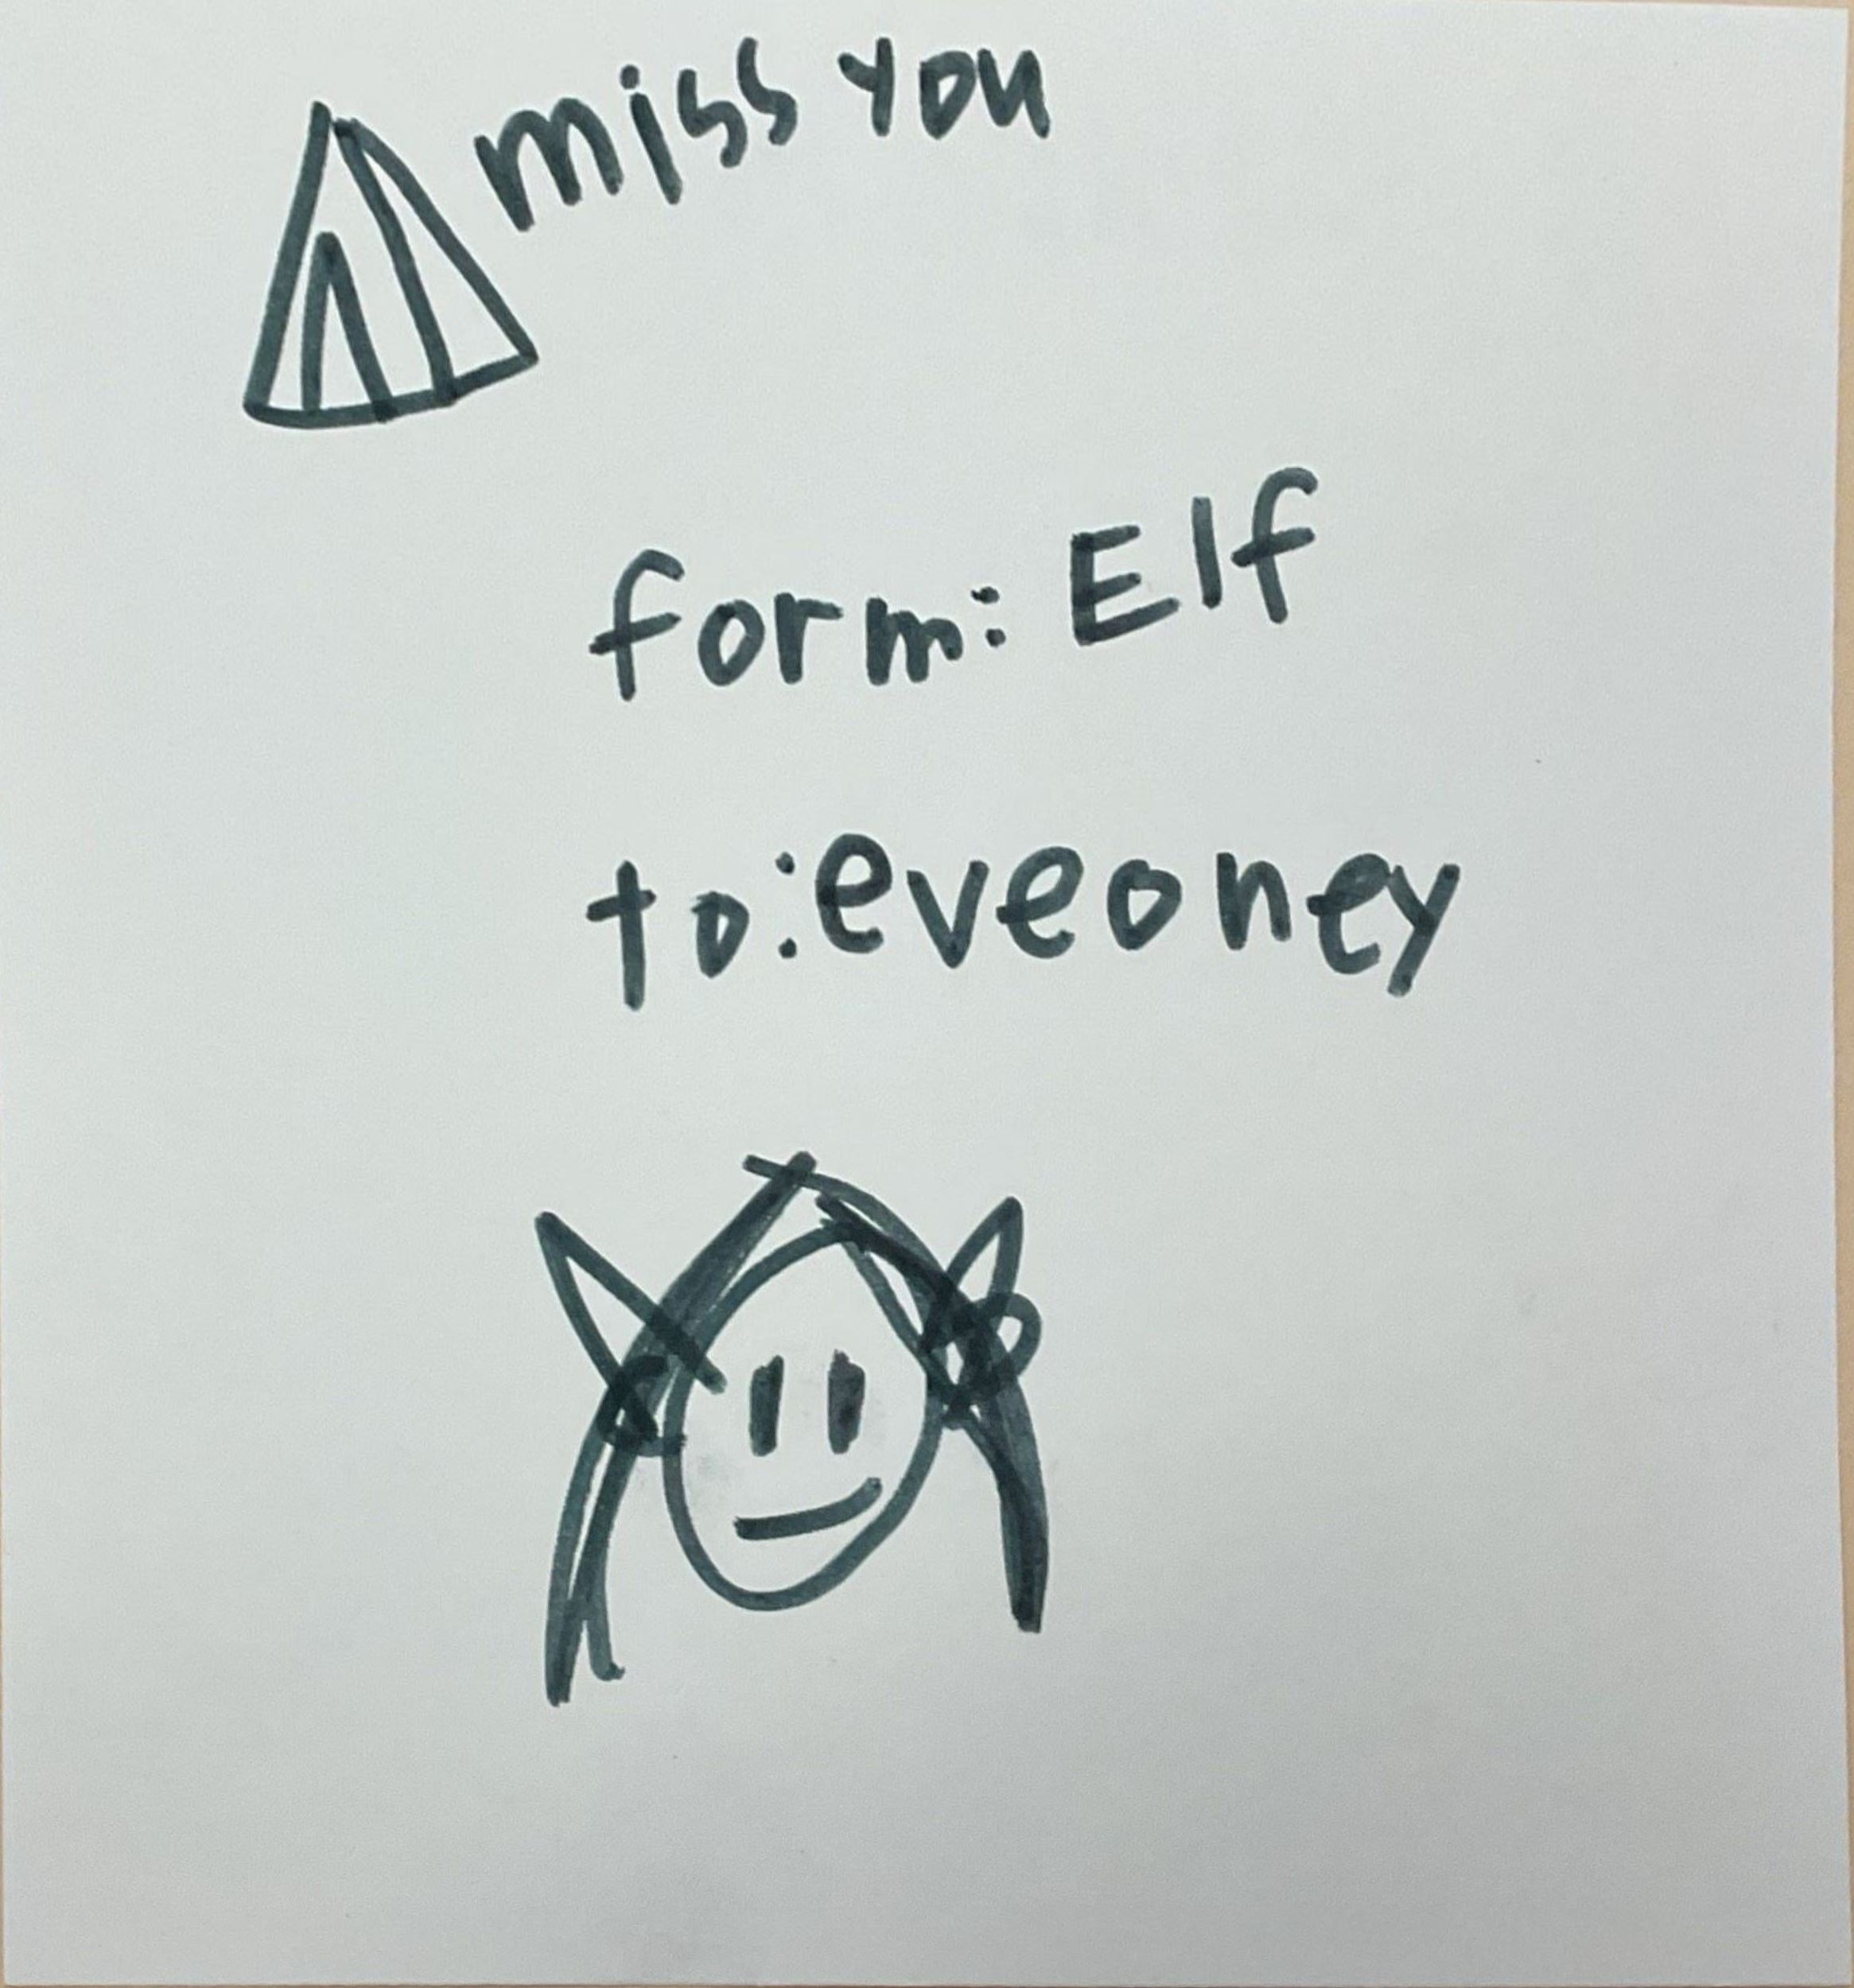 miss you
form: Elf
to: eveoney